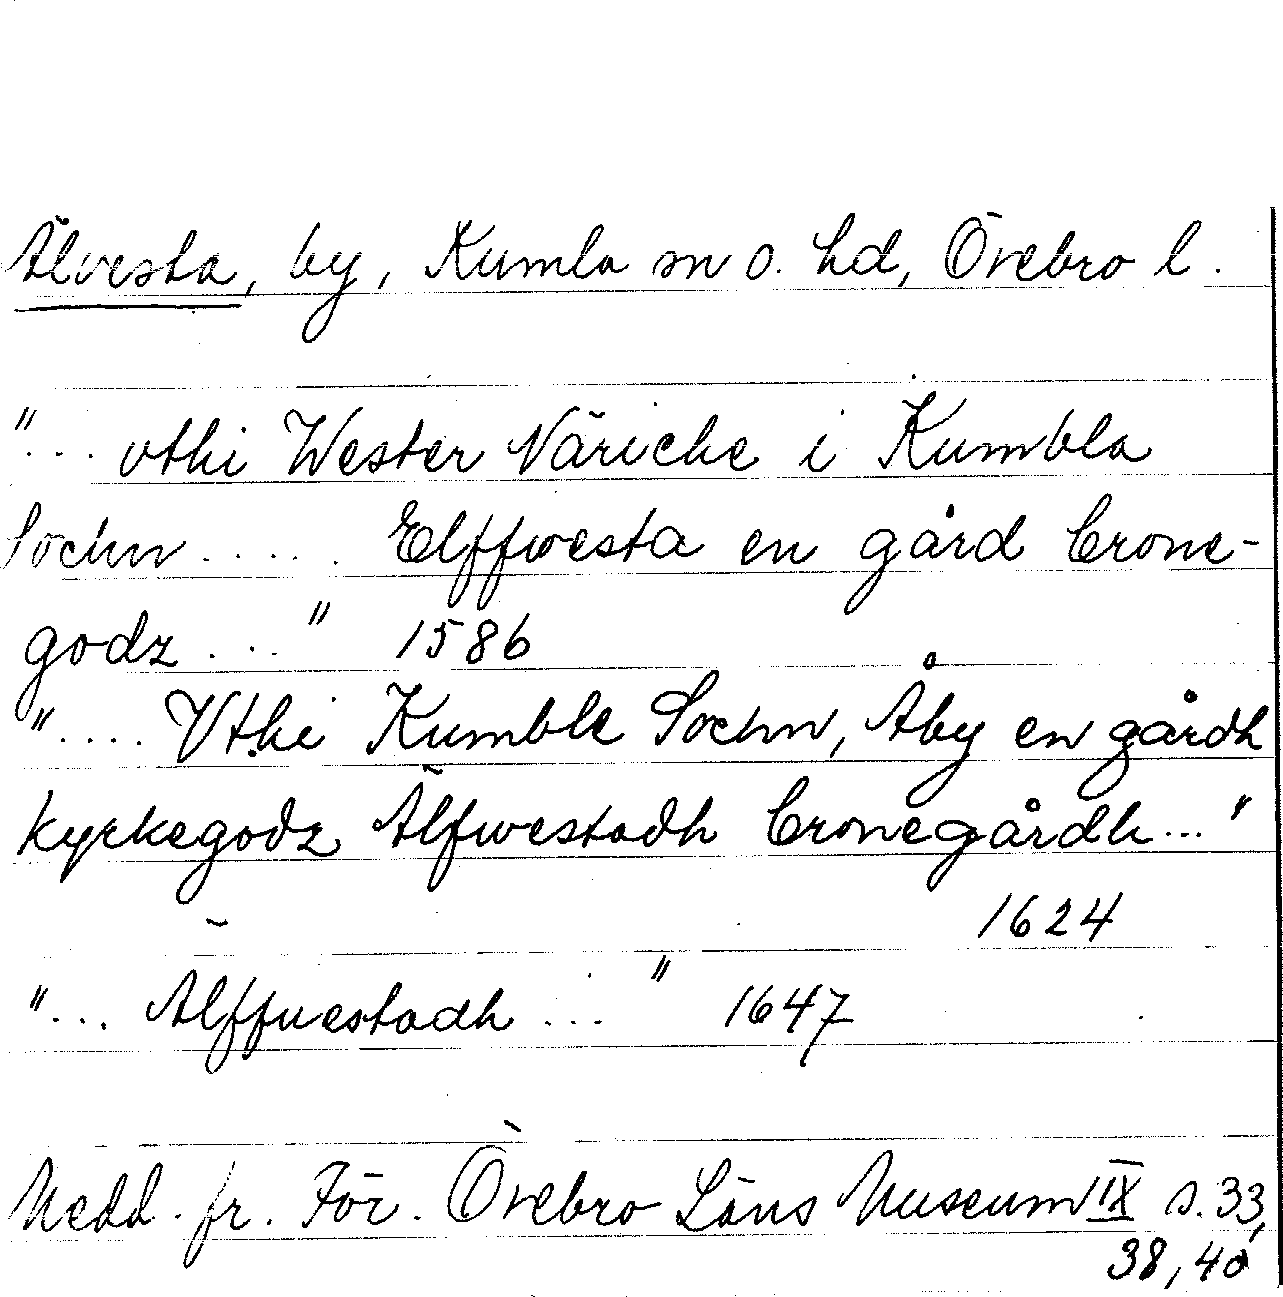 Älvesta, by, Kumla sn o. hd, Örebro l.
"... vthi Wester Näricke i Kumbla
Sochn .... Elffwesta en gård Crone-
godz ..." 1586
".... Vthi Kumble Sochn, Åby en gårdh
kyrkegodz Älfwestadh Cronegårdh..."
1624
"... Älffuestadh ..." 1647
Medd. fr. För. Örebro Läns Museum IX s. 33,
38, 40